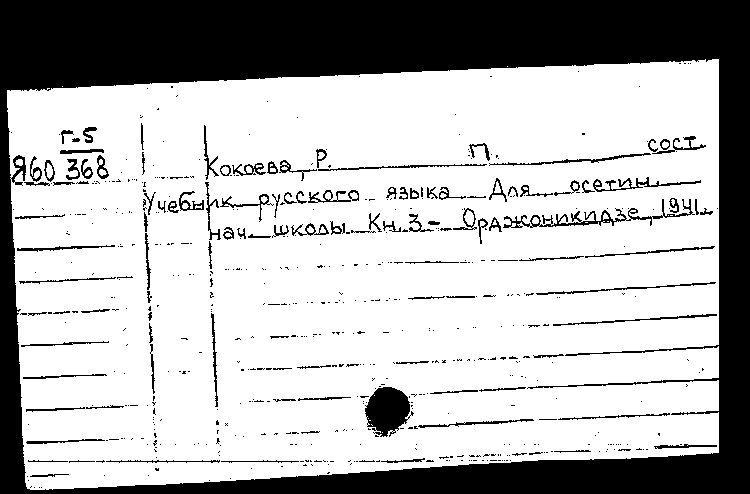 Г-5
Я60 368
Кокоева, Р. П. сост.
Учебник русского языка Для осетин.
нач. школы Кн. 3 - Орджоникидзе, 1941.